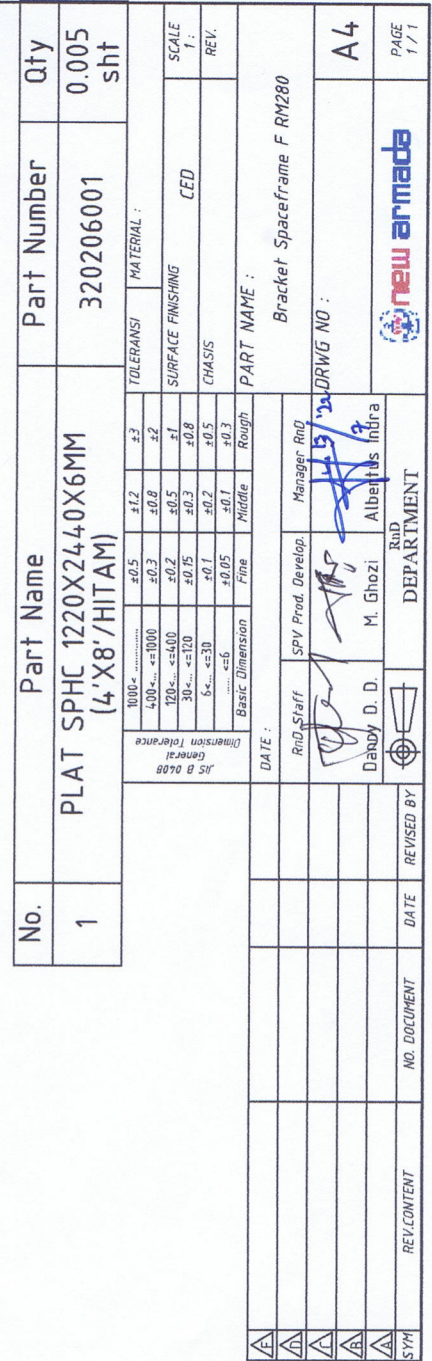 No. Part Name Part Number Qty
1 PLAT SPHC 1220X2440X6MM 320206001 0.005
(4'X8'/HITAM) sht
JIS B 0408
General
Dimension Tolerance
1000< .............. ±0.5 ±1.2 ±3
400<... <=1000 ±0.3 ±0.8 ±2
120<... <=400 ±0.2 ±0.5 ±1
30<... <=120 ±0.15 ±0.3 ±0.8
6<... <=30 ±0.1 ±0.2 ±0.5
...... <=6 ±0.05 ±0.1 ±0.3
Basic Dimension Fine Middle Rough
TOLERANSI MATERIAL :
SURFACE FINISHING
CED
SCALE
1 :
CHASIS
REV.
DATE :
PART NAME :
Bracket Spaceframe F RM280
RnD Staff SPV Prod. Develop. Manager RnD
DRWG NO :
A4
Dandy D. D. M. Ghozi Albentus Indra
RnD
DEPARTMENT
new armada
PAGE
1 / 1
F
D
C
B
A
SYM REV.CONTENT NO. DOCUMENT DATE REVISED BY